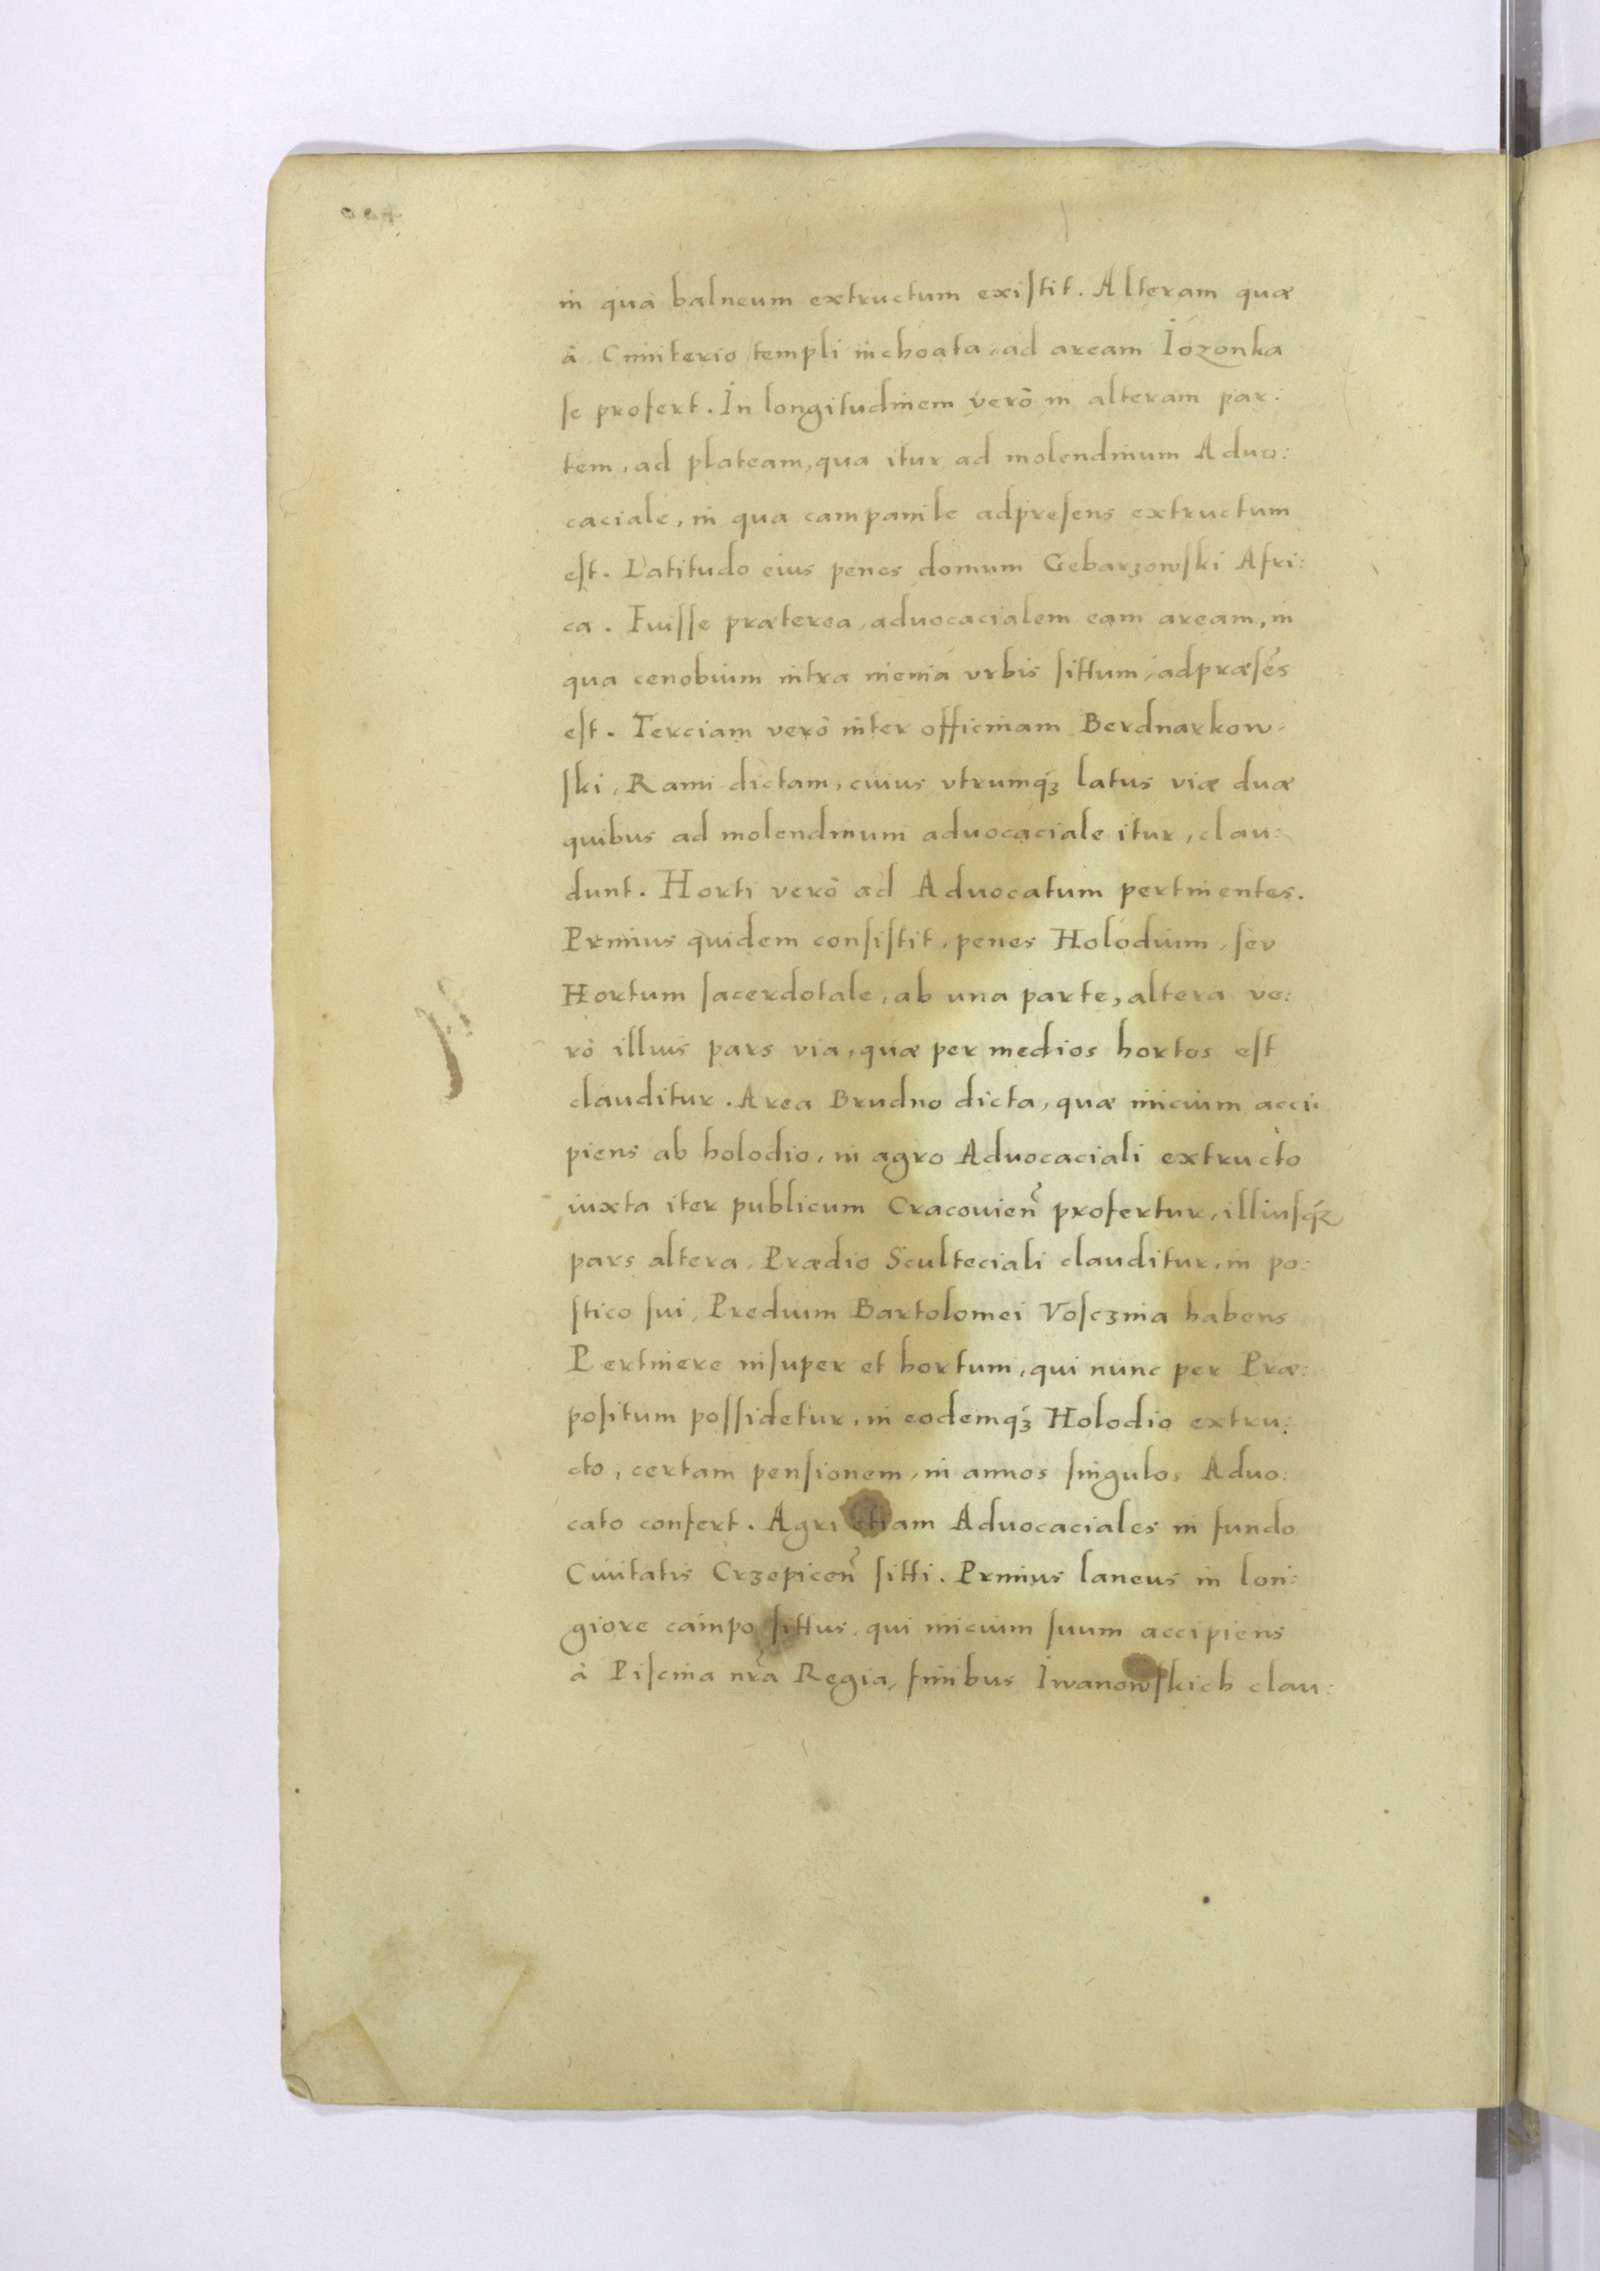 in qua balneum extructum exiſtit. Alteram quæ
à Cimiterio templi inchoata, ad aream Iozonka
ſe profert. In longitudinem verò in alteram par:
tem, ad plateam, qua itur ad molendinum Aduo:
caciale, in qua campanile adpreſens extructum
eſt. Latitudo eius penes domum Gebarzowſki Afri:
ca. Fuiſſe præterea, aduocacialem eam aream, in
qua cenobium intra menia vrbis ſittum, adpræſẽs
eſt. Terciam verò inter officinam Berdnarkow:
ſki, Rami dictam, cuius vtrumqꝫ latus viæ duæ
quibus ad molendinum aduocaciale itur, clau:
dunt. Horti verò ad Aduocatum pertinentes.
Primus quidem conſiſtit, penes Holodium, ſev
Hortum ſacerdotale, ab una parte, altera ve:
rò illius pars via, quæ per medios hortos eſt
clauditur. Area Brudno dicta, quæ inicium acci:
piens ab holodio, in agro Aduocaciali extructo
iuxta iter publicum Cracouień profertur, illiuſqꝫ
pars altera, Prædio Sculteciali clauditur, in po:
ſtico ſui, Predium Bartolomei Voſczina habens
Pertinere inſuper et hortum, qui nunc per Præ:
poſitum poſſidetur, in eodemqꝫ Holodio extru:
cto, certam penſionem, in annos ſingulos Aduo:
cato confert. Agri etiam Aduocaciales in fundo
Ciuitatis Crzepiceń ſitti. Primus laneus in lon:
giore campo ſittus, qui inicium ſuum accipiens
à Piſcina nr̃a Regia, finibus Iwanowſkich clau: